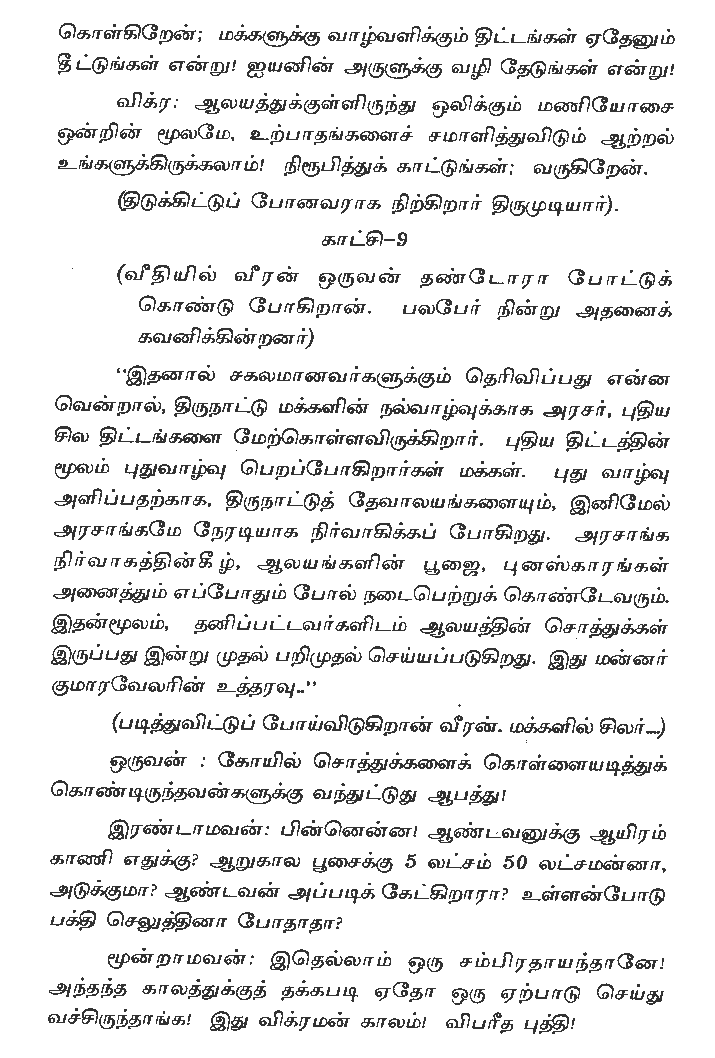 கொள்கிறேன்; மக்களுக்கு வாழ்வளிக்கும் திட்டங்கள் ஏதேனும்
தீட்டுங்கள் என்று! ஐயனின் அருளுக்கு வழி தேடுங்கள் என்று!
விக்ர: ஆலயத்துக்குள்ளிருந்து ஒலிக்கும் மணியோசை
ஒன்றின் மூலமே, உற்பாதங்களைச் சமாளித்துவிடும் ஆற்றல்
உங்களுக்கிருக்கலாம்! நிரூபித்துக் காட்டுங்கள்; வருகிறேன்.
(திடுக்கிட்டுப் போனவராக நிற்கிறார் திருமுடியார்).
காட்சி-9
(வீதியில் வீரன் ஒருவன் தண்டோரா போட்டுக்
கொண்டு போகிறான். பலபேர் நின்று அதனைக்
கவனிக்கின்றனர்)
"இதனால் சகலமானவர்களுக்கும் தெரிவிப்பது என்ன
வென்றால், திருநாட்டு மக்களின் நல்வாழ்வுக்காக அரசர், புதிய
சில திட்டங்களை மேற்கொள்ளவிருக்கிறார். புதிய திட்டத்தின்
மூலம் புதுவாழ்வு பெறப்போகிறார்கள் மக்கள். புது வாழ்வு
அளிப்பதற்காக, திருநாட்டுத் தேவாலயங்களையும், இனிமேல்
அரசாங்கமே நேரடியாக நிர்வாகிக்கப் போகிறது. அரசாங்க
நிர்வாகத்தின்கீழ், ஆலயங்களின் பூஜை, புனஸ்காரங்கள்
அனைத்தும் எப்போதும் போல் நடைபெற்றுக் கொண்டேவரும்.
இதன்மூலம், தனிப்பட்டவர்களிடம் ஆலயத்தின் சொத்துக்கள்
இருப்பது இன்று முதல் பறிமுதல் செய்யப்படுகிறது. இது மன்னர்
குமாரவேலரின் உத்தரவு.."
(படித்துவிட்டுப் போய்விடுகிறான் வீரன். மக்களில் சிலர்...)
ஒருவன் : கோயில் சொத்துக்களைக் கொள்ளையடித்துக்
கொண்டிருந்தவன்களுக்கு வந்துட்டுது ஆபத்து!
இரண்டாமவன்: பின்னென்ன! ஆண்டவனுக்கு ஆயிரம்
காணி எதுக்கு? ஆறுகால பூசைக்கு 5 லட்சம் 50 லட்சமன்னா,
அடுக்குமா? ஆண்டவன் அப்படிக் கேட்கிறாரா? உள்ளன்போடு
பக்தி செலுத்தினா போதாதா?
மூன்றாமவன்: இதெல்லாம் ஒரு சம்பிரதாயந்தானே!
அந்தந்த காலத்துக்குத் தக்கபடி ஏதோ ஒரு ஏற்பாடு செய்து
வச்சிருந்தாங்க! இது விக்ரமன் காலம்! விபரீத புத்தி!